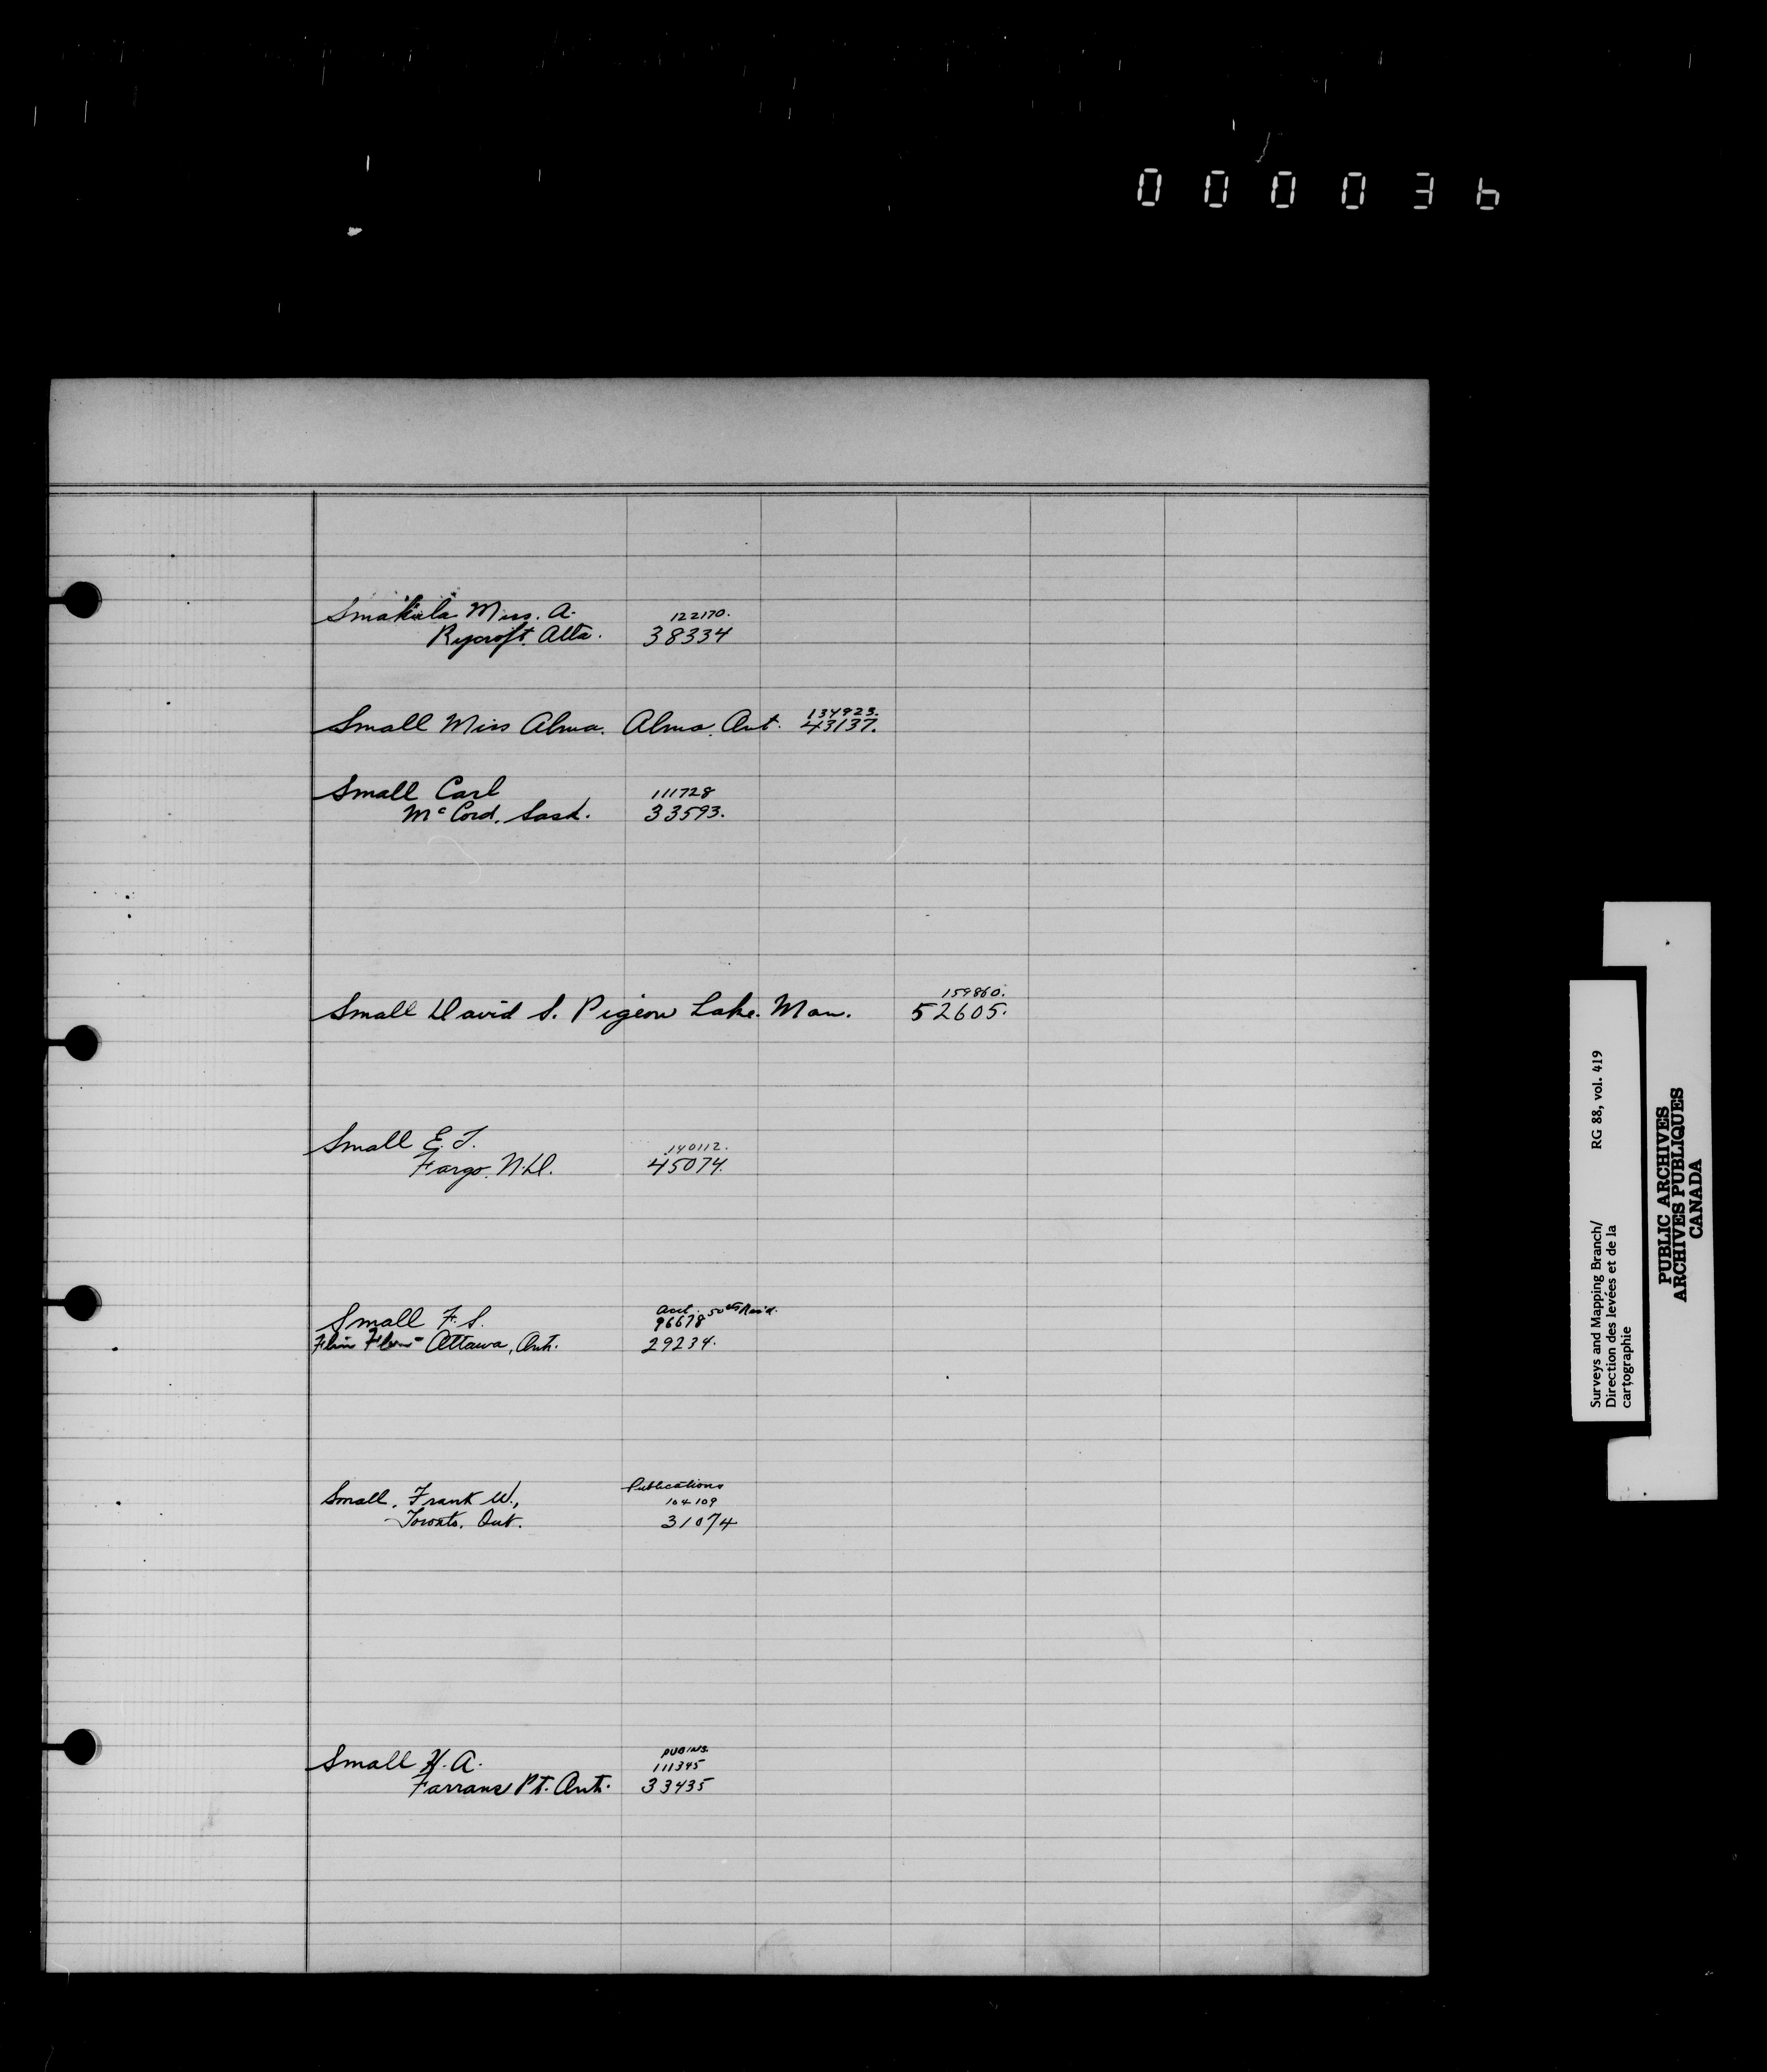 000036
Smakula Miss. A. 122170.
Rycroft. Alta. 38334
134923.
Small Miss Alma. Alma. Ont. 43137.
Small Carl 111728
McCord, Sask. 33593.
159860.
Small David S. Pigeon Lake. Man. 52605.
Small E. T. 140112.
Fargo. N.D. 45074.
Acct. 50cts Rec'd.
Small F. S. 96678
Flin Flon - Ottawa, Ont. 29234.
Publications
Small, Frank W., 104109
Toronto, Ont. 31074
PUB'NS.
Small H. A. 111345
Farrans Pt. Ont. 33435
Surveys and Mapping Branch/ RG 88, vol. 419
Direction des levées et de la
cartographie
PUBLIC ARCHIVES
ARCHIVES PUBLIQUES
CANADA